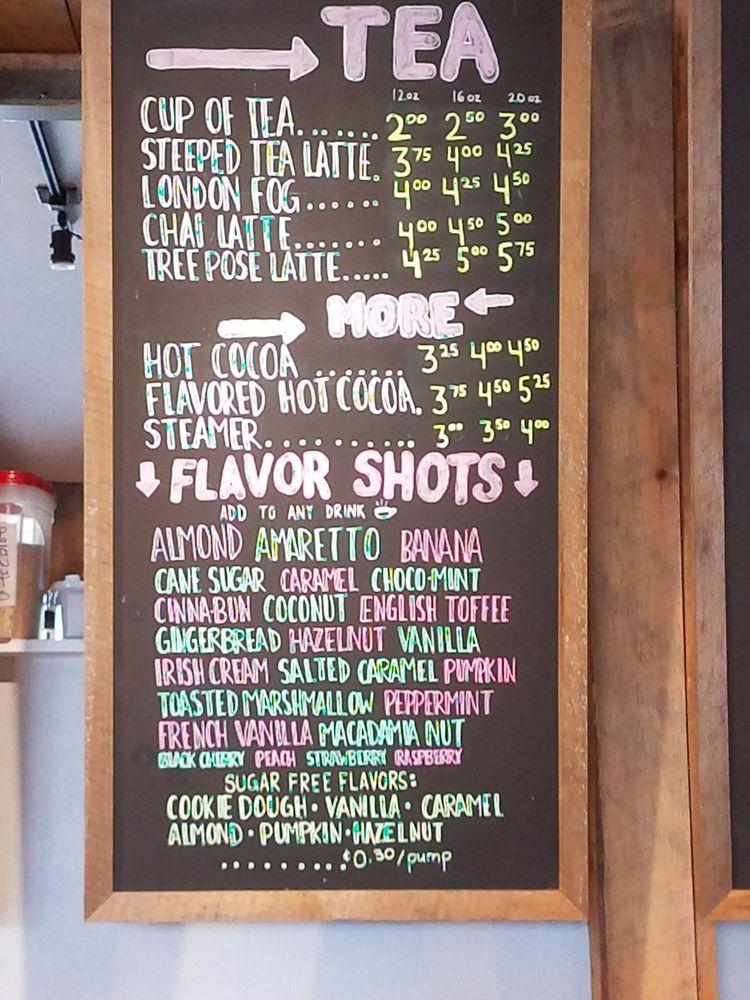 TEA
12oz 16oz 20oz
CUP OF TEA....... 2.00 2.50 3.00
STEEPED TEA LATTE. 3.75 4.00 4.25
LONDON FOG...... 4.00 4.25 4.50
CHAI LATTE....... 4.00 4.50 5.00
TREE POSE LATTE..... 4.25 5.00 5.75
MORE
HOT COCOA ....... 3.25 4.00 4.50
FLAVORED HOT COCOA. 3.75 4.50 5.25
STEAMER........... 3.00 3.50 4.00
FLAVOR SHOTS
ADD TO ANY DRINK
ALMOND AMARETTO BANANA
CANE SUGAR CARAMEL CHOCO-MINT
CINNABUN COCONUT ENGLISH TOFFEE
GINGERBREAD HAZELNUT VANILLA
IRISH CREAM SALTED CARAMEL PUMPKIN
TOASTED MARSHMALLOW PEPPERMINT
FRENCH VANILLA MACADAMIA NUT
BLACK CHERRY PEACH STRAWBERRY RASPBERRY
SUGAR FREE FLAVORS:
COOKIE DOUGH • VANILLA • CARAMEL
ALMOND • PUMPKIN • HAZELNUT
.......... 0.50/pump